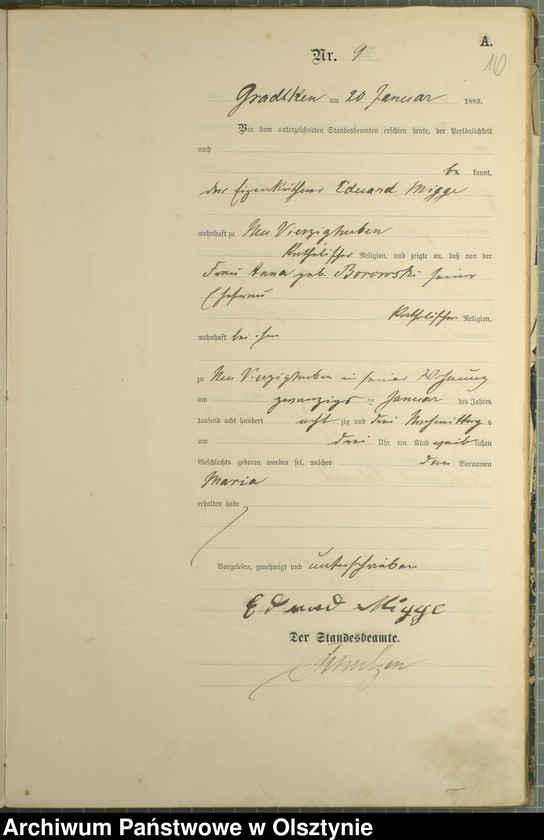 A.
10
Nr. 9
Gradtken am 20 Januar 1883.
Vor dem unterzeichneten Standesbeamten erschien heute, der Persönlichkeit
nach
be kannt,
der Eigenkäthner Eduard Migge
wohnhaft zu Neu Vierzighuben
Katholischer Religion, und zeigte an, daß von der
Frau Anna geb. Borowski seiner
Ehefrau
Katholischer Religion,
wohnhaft bei ihm
zu Neu Vierzighuben in seiner Wohnung
am zwanzigs ten Januar des Jahres
tausend acht hundert acht zig und drei Nachmittag s
um drei Uhr ein Kind weib lichen
Geschlechts geboren worden sei, welches den Vornamen
Maria
erhalten habe
Vorgelesen, genehmigt und unterschrieben
Eduard Migge
Der Standesbeamte.
Archiwum Państwowe w Olsztynie